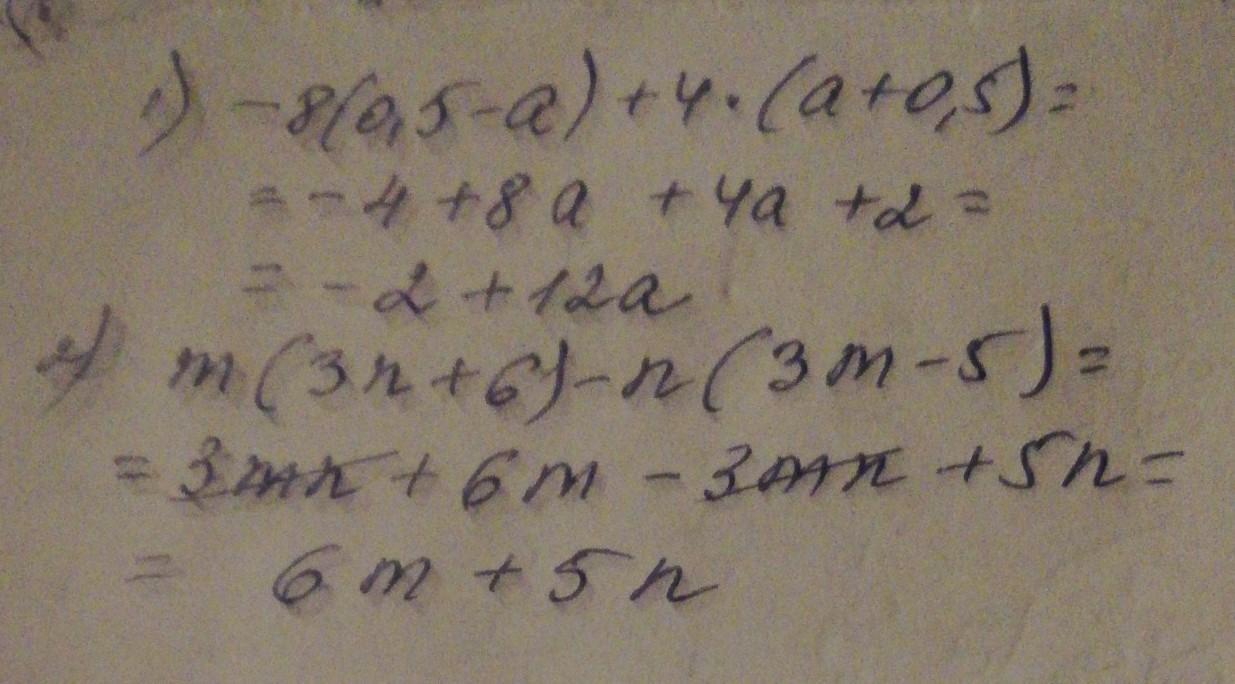 1) -8(0,5-a)+4·(a+0,5)=
=-4+8a +4a +2=
=-2+12a
2) m(3n+6)-n(3m-5)=
=3mn+6m-3mn+5n=
= 6m+5n